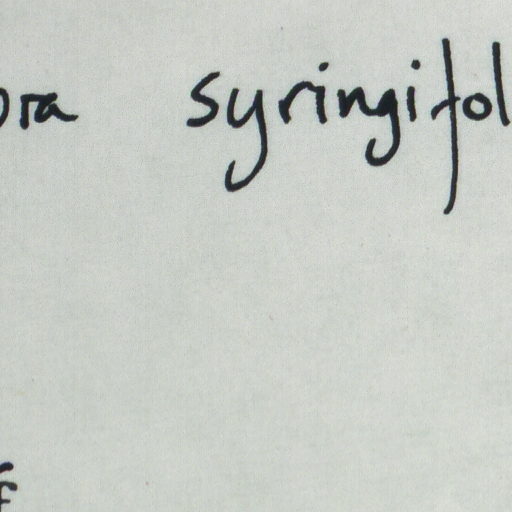 ora syringifol
f